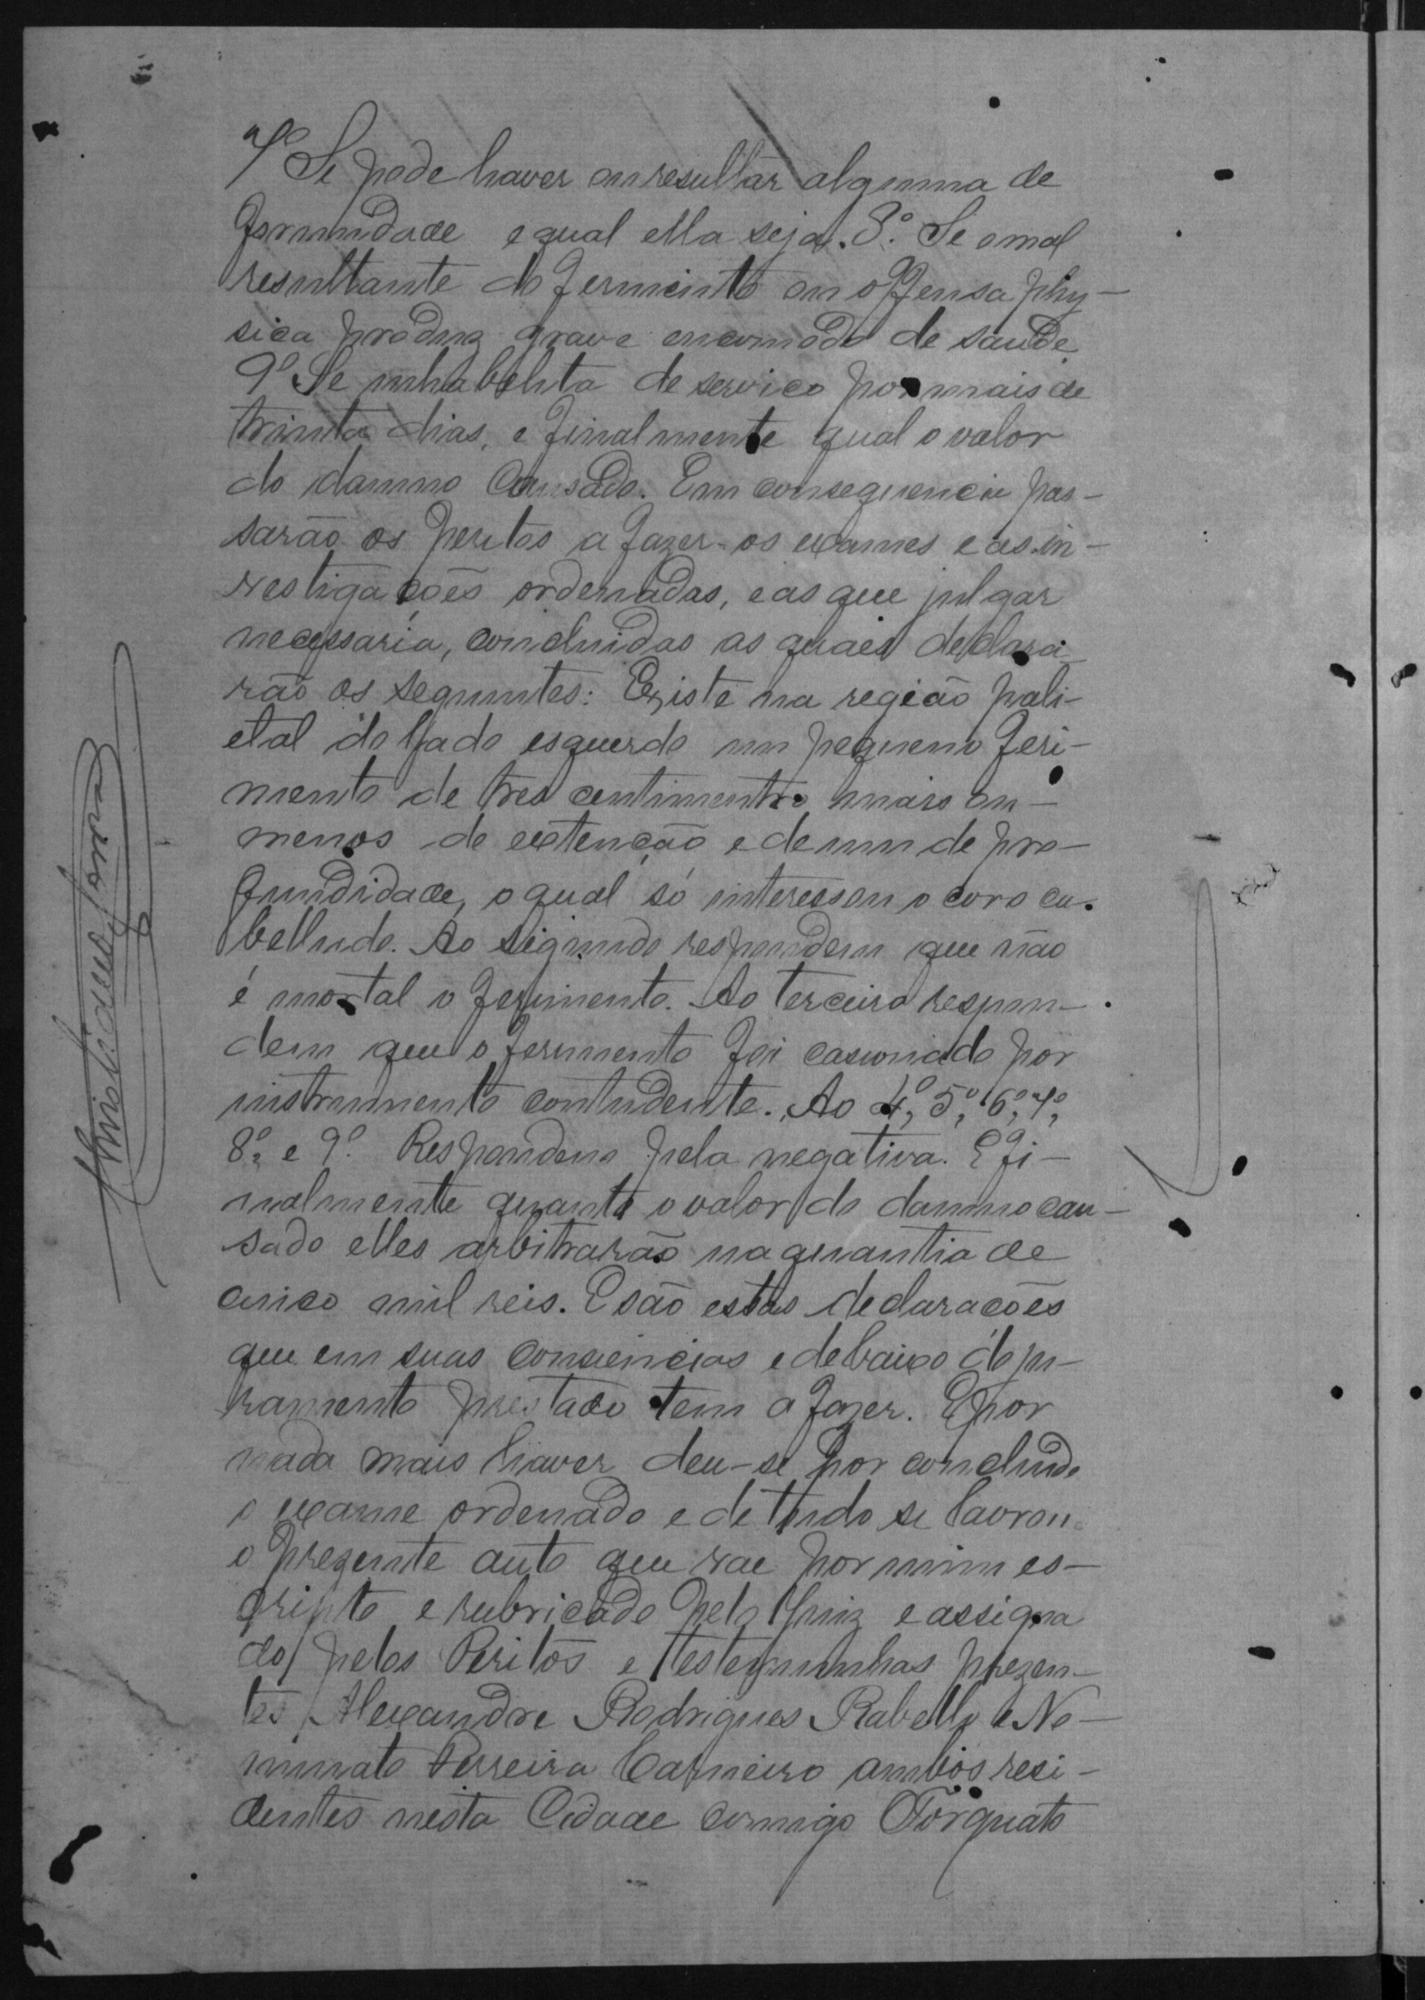 7º Se pode haver ou resultar alguma de
formidade e qual ella seja. 8º. Se o mal
resultante do ferimento ou offensa phy-
sica produz grave encomodo de saude
9º Se inhabelita de servico por mais de
trinta dias, e finalmente qual o valor
do damno Causado. Em consequencia pas-
sarão os peritos a fazer os exames e as in-
vestigações ordenadas, e as que julgar
necessaria, concluidas as quaes declara-
rão os seguintes: Existe na região pali-
etal do lado esquerdo um pequeno feri-
mento de tres centimentro mais ou-
menos de extenção e de um de pro-
fundidade, o qual só interessou o coro ca-
belludo. Ao segundo respondem que não
é mortal o ferimento. Ao terceiro respon-
dem que o ferimento foi casionado por
instrumento contudente. Ao 4º, 5º, 6º, 7º,
8º. e 9º. Respondem pela negativa. E fi-
nalmente quanto o valor do damno cau-
sado elles arbitrarão na quantia de
cinco mil reis. E são estas declaracões
que em suas conciencias e debaixo do ju-
ramento prestado tem a fazer. E por
nada mais haver deu-se por concluido
o exame ordenado e de tudo se lavrou
o prezente auto que vae por mim es-
cripto e rubricado pelo Juiz e assigna
do pelos Peritos e testemunhas prezen-
tes Alexandre Rodrigues Rabello e No-
minato Ferreira Carneiro ambos resi-
dentes nesta Cidade comigo Torquato